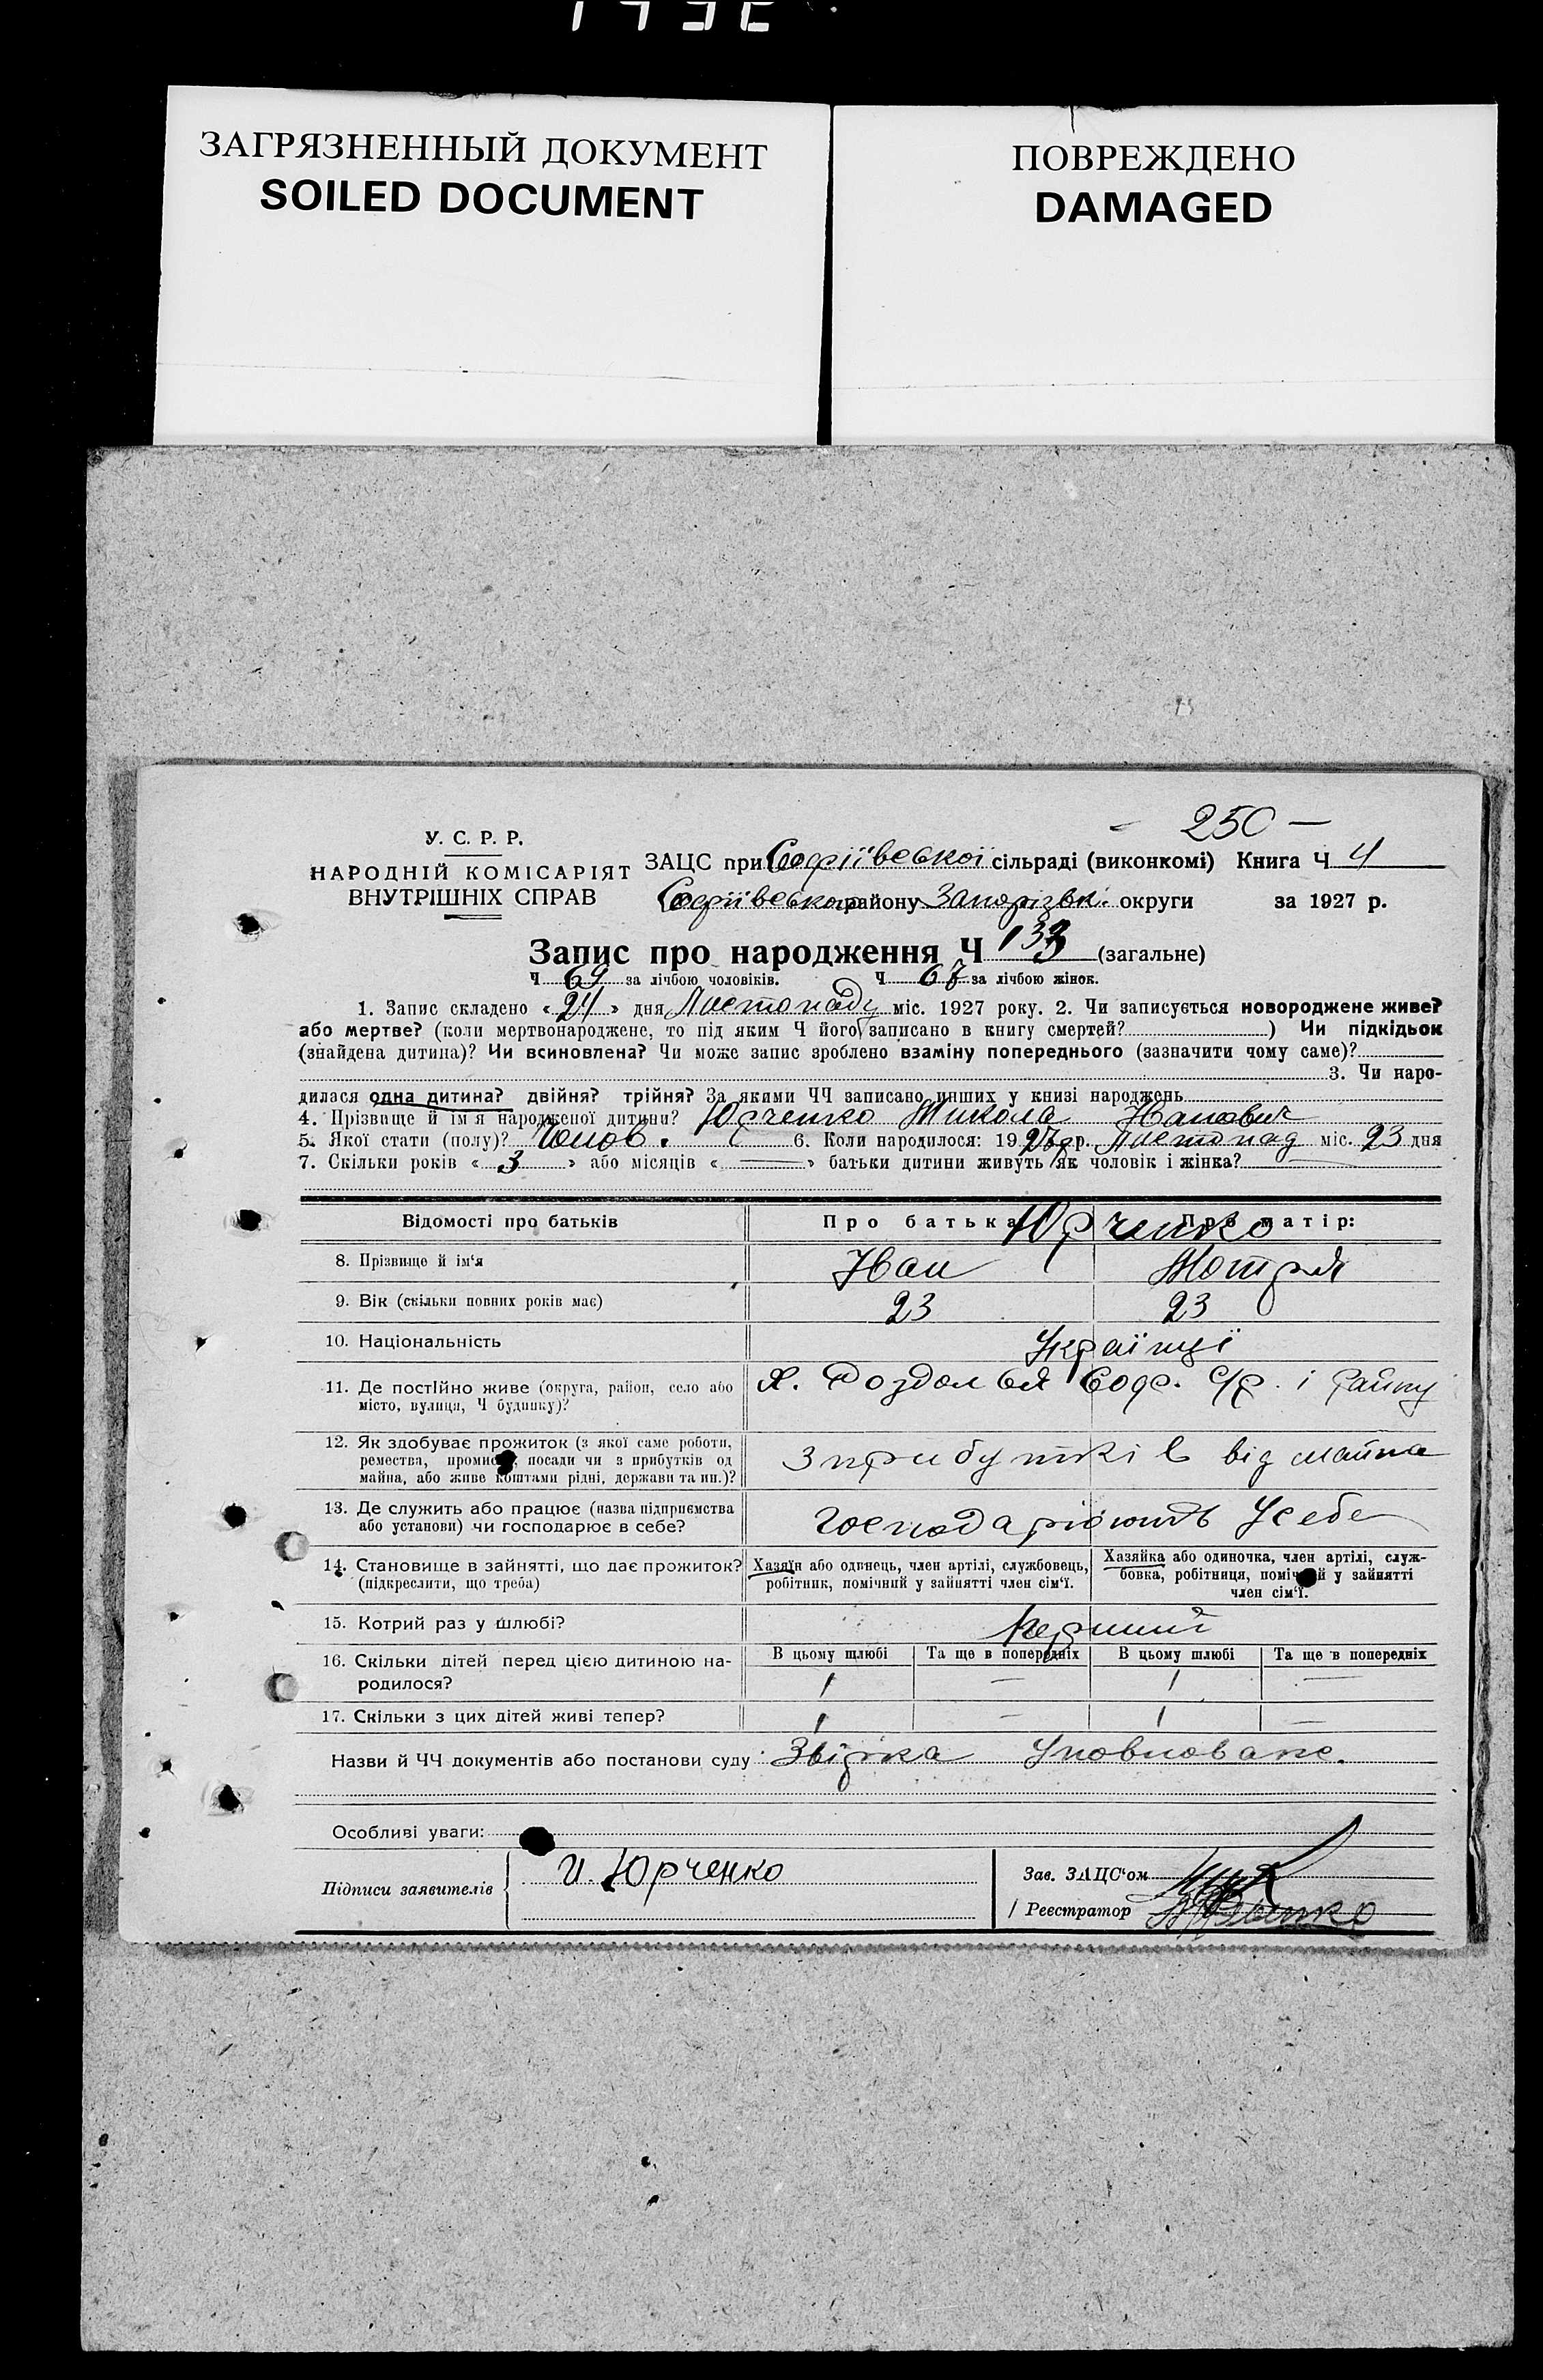 ЗАГРЯЗНЕННЫЙ ДОКУМЕНТ
SOILED DOCUMENT
ПОВРЕЖДЕНО
DAMAGED
250 —
У. С. Р. Р.
НАРОДНІЙ КОМІСАРІЯТ
ВНУТРІШНІХ СПРАВ
ЗАЦС при Софіївської сільраді (виконкомі) Книга Ч 4
Софіївського району Запорізьк. округи за 1927 р.
Запис про народження Ч 133 (загальне)
Ч 69 за лічбою чоловіків. Ч 67 за лічбою жінок.
1. Запис складено « 24 » дня Листопаду міс. 1927 року. 2. Чи записується новороджене живе?
або мертве? (коли мертвонароджене, то під яким Ч його записано в книгу смертей? ) Чи підкідьок
(знайдена дитина)? Чи всиновлена? Чи може запис зроблено взаміну попереднього (зазначити чому саме)?
3. Чи наро-
дилася одна дитина? двійня? трійня? За якими ЧЧ записано инших у книзі народжень
4. Прізвище й ім'я народженої дитини? Юрченко Микола Іванович
5. Якої стати (полу)? Чолов. 6. Коли народилося: 1927 р. Листопад міс. 23 дня
7. Скільки років « 3 » або місяців « — » батьки дитини живуть як чоловік і жінка? —
Відомості про батьків
Про батька Юрченко Про матір:
8. Прізвище й ім'я Іван Мотря
9. Вік (скільки повних років має) 23 23
10. Національність Українці
11. Де постійно живе (округа, район, село або
місто, вулиця, Ч будинку)?
Х. Роздолья Соф. с/р. і району
12. Як здобуває прожиток (з якої саме роботи,
ремества, промислу, посади чи з прибутків од
майна, або живе коштами рідні, держави та ин.)?
З прибутків від майна
13. Де служить або працює (назва підприємства
або установи) чи господарює в себе?
Господарюють У себе
14. Становище в зайнятті, що дає прожиток?
(підкреслити, що треба)
Хазяїн або одинець, член артілі, службовець,
робітник, помічний у зайнятті член сім'ї.
Хазяйка або одиночка, член артілі, служ-
бовка, робітниця, помічний у зайнятті
член сім'ї.
15. Котрий раз у шлюбі? Перший
16. Скільки дітей перед цією дитиною на-
родилося?
В цьому шлюбі Та ще в попередніх В цьому шлюбі Та ще в попередніх
1 — 1 —
17. Скільки з цих дітей живі тепер? 1 — 1 —
Назви й ЧЧ документів або постанови суду
Особливі уваги:
Підписи заявителів И. Юрченко
Зав. ЗАЦС'ом
Реєстратор